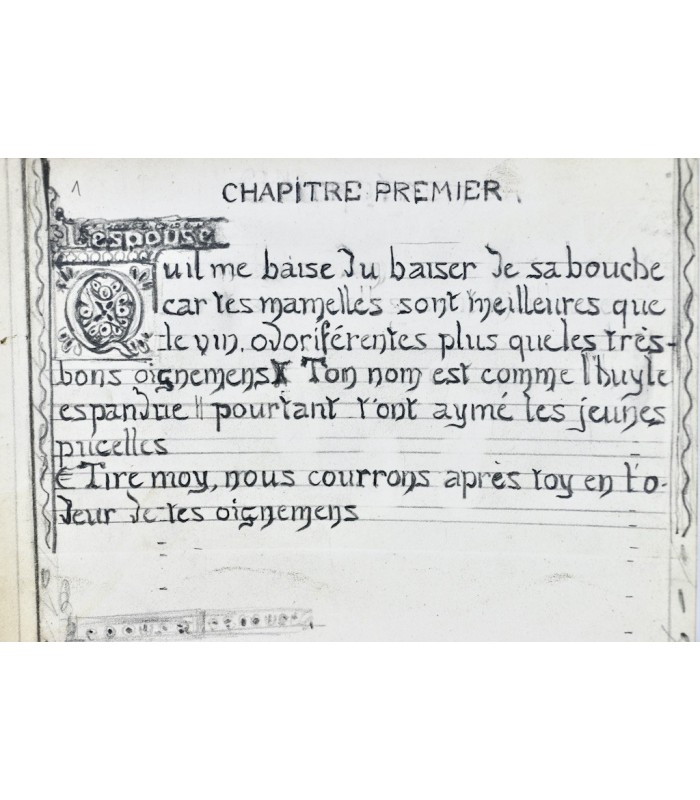 1
CHAPITRE PREMIER
L'espouse
Quil me baise du baiser de sa bouche
car tes mamelles sont meilleures que
le vin, odoriférentes plus que les très-
bons oignemens Ton nom est comme l'huyle
espandue || pourtant t'ont aymé les jeunes
pucelles
€ Tire moy, nous courrons après toy en l'o-
deur de tes oignemens